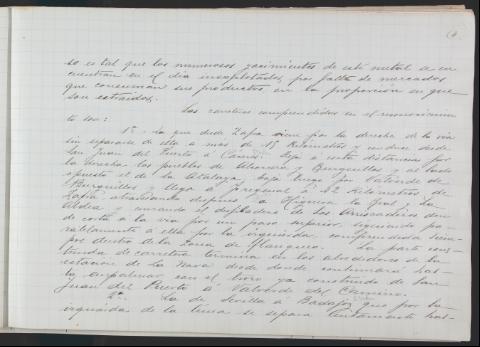 so es tal que los numerosos yacimientos de este metal se en
cuentran en el dia inexplotados, por falta de mercados
que consuman sus productos en la proporcion en que
son extraidos.
Las carreteras comprendidas en el reconocimien
to son:
1ª. La que desde Zafra viene por la derecha de la via
sin separarse de ella a mas de 15 Kilometros y se dirige desde
San Juan del Puerto á Cáceres. Deja a corta distancia por
la derecha los pueblos de Alconera y Burguillos y al lado
opuesto el de la Atalaya, baja luego por Valverde de
Burguillos y llega á Fregenal á 42 Kilómetros de
Zafra, abandonando despues á Higuera la Real y La
y cruzando el desfiladero de los
de corta á la via por un paso superior, siguiendo pa-
ralelamente á ella por la izquierda, comprendida siem-
pre dentro de la zona de flanqueo. La parte cons-
truida de carretera termina en los alrededores de la
estacion de la Nava desde donde continuará has-
ta empalmar con el trozo ya construido de San
Juan del Puerto á Valverde del Camino.
2ª. La de Sevilla á Badajoz que por la
izquierda de la linea se separa lentamente has-